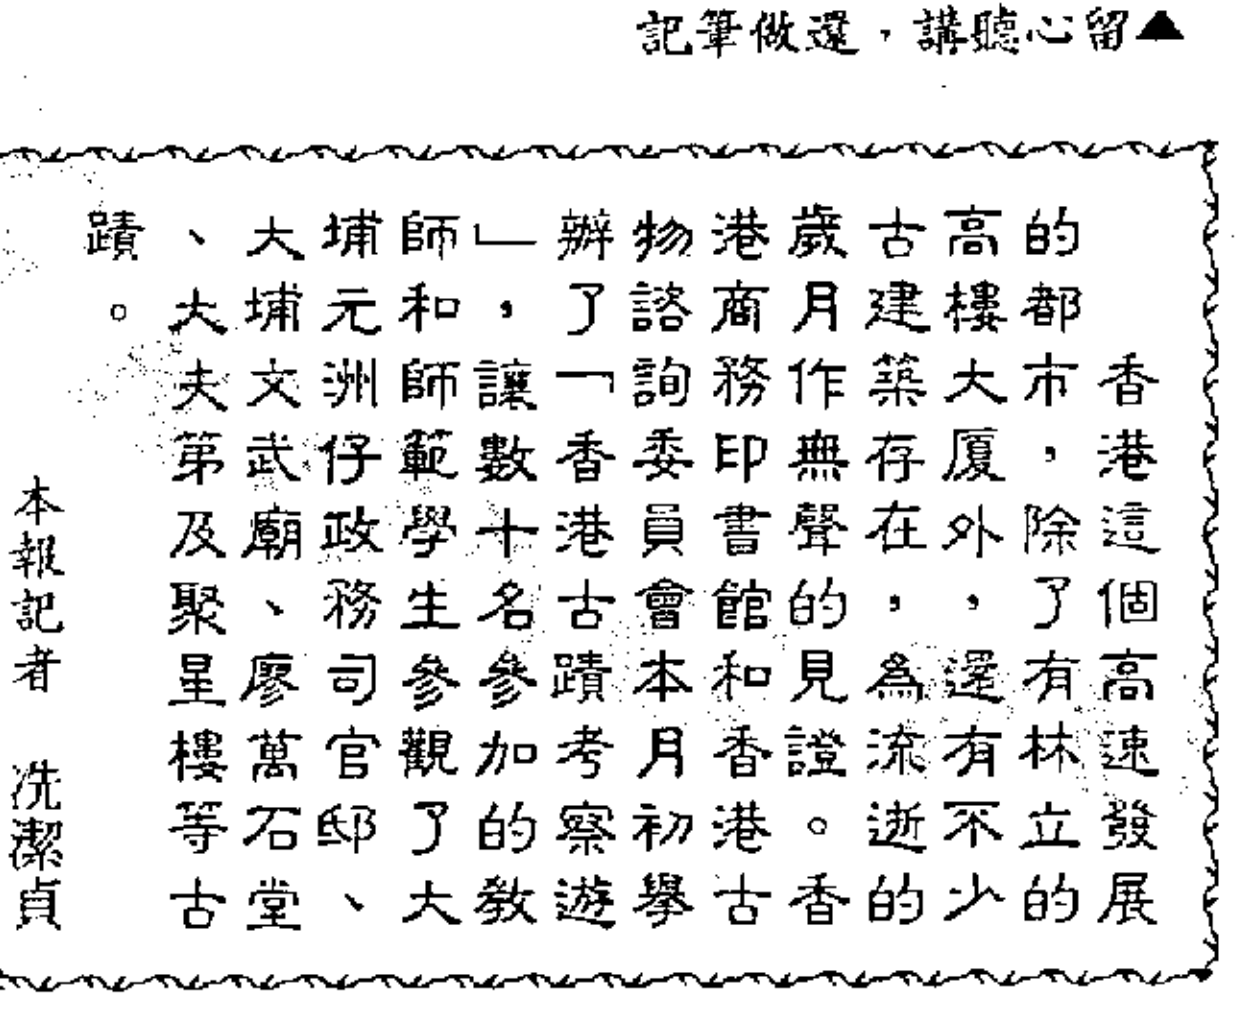 ▲留心聽講，還做筆記
香港這個高速發展
的都市，除了有林立的
高樓大厦外，還有不少
古建築存在，為流逝的
歲月作無聲的見證。香
港商務印書館和香港古
物諮詢委員會本月初舉
辦了「香港古蹟考察遊
」，讓數十名參加的教
師和師範學生參觀了大
埔元洲仔政務司官邸、
大埔文武廟、廖萬石堂
、大夫第及聚星樓等古
蹟。
本報記者　冼潔貞